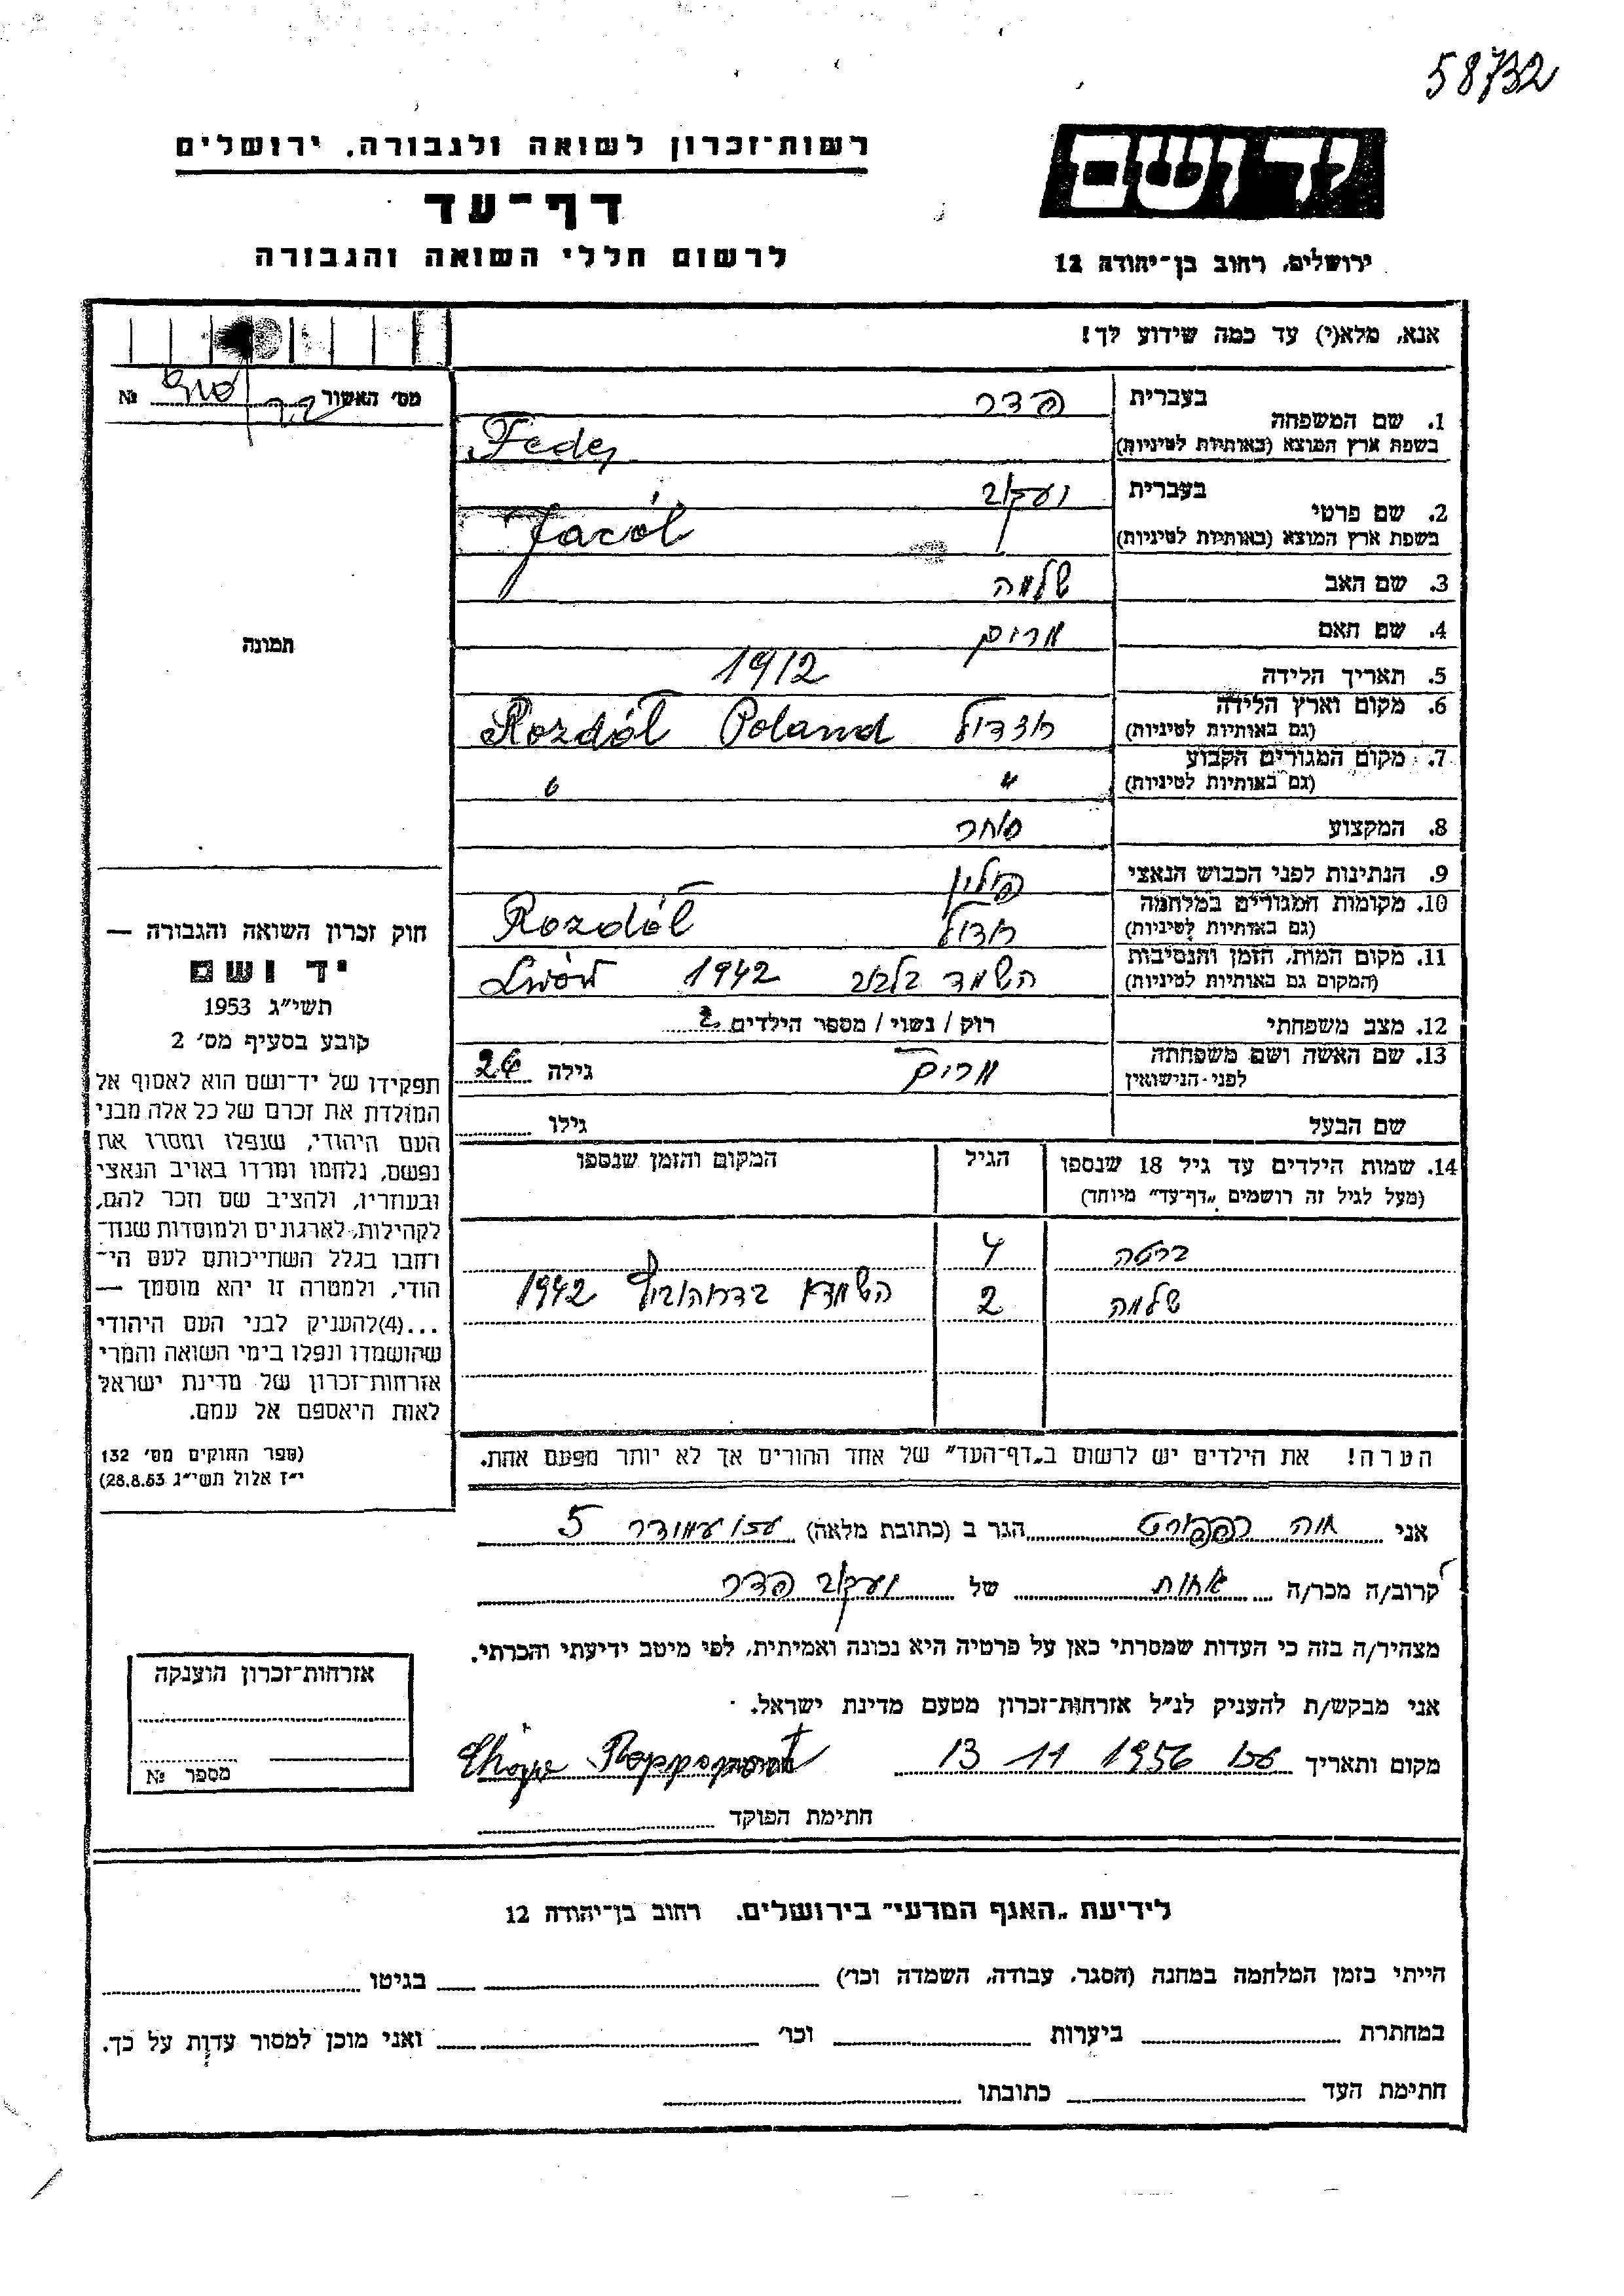 58732
רשות־זכרון לשואה ולגבורה, ירושלים
יד ושם
דף־עד
לרשום חללי השואה והגבורה
ירושלים, רחוב בן־יהודה 12
אנא, מלא(י) עד כמה שידוע לך!
מס' האשור № 
1. שם המשפחה
בעברית פדר
בשפת ארץ המוצא (באותיות לטיניות) Feder
2. שם פרטי
בעברית יעקב
בשפת ארץ המוצא (באותיות לטיניות) Jacób
3. שם האב שלמה
4. שם האם מרים
תמונה
5. תאריך הלידה 1912
6. מקום וארץ הלידה
(גם באותיות לטיניות) רוזדול Rozdół Poland
7. מקום המגורים הקבוע
(גם באותיות לטיניות) " "
8. המקצוע סוחר
9. הנתינות לפני הכבוש הנאצי פולין
10. מקומות המגורים במלחמה
(גם באותיות לטיניות) רוזדול Rozdół
11. מקום המות, הזמן והנסיבות
(המקום גם באותיות לטיניות) השמד בלבוב 1942 Lwów
12. מצב משפחתי רוק / נשוי / מספר הילדים 2
13. שם האשה ושם משפחתה
לפני־הנישואין מרים גילה 26
שם הבעל גילו
14. שמות הילדים עד גיל 18 שנספו הגיל המקום והזמן שנספו
(מעל לגיל זה רושמים „דף־עד" מיוחד)
ברטה 4
שלמה 2 1942
הערה! את הילדים יש לרשום ב„דף־העד" של אחד ההורים אך לא יותר מפעם אחת.
חוק זכרון השואה והגבורה —
יד ושם
תשי"ג 1953
קובע בסעיף מס' 2
תפקידו של יד־ושם הוא לאסוף אל
המולדת את זכרם של כל אלה מבני
העם היהודי, שנפלו ומסרו את
נפשם, נלחמו ומרדו באויב הנאצי
ובעוזריו, ולהציב שם וזכר להם,
לקהילות, לארגונים ולמוסדות שנח־
רבו בגלל השתייכותם לעם הי־
הודי, ולמטרה זו יהא מוסמך —
...(4)להעניק לבני העם היהודי
שהושמדו ונפלו בימי השואה והמרי
אזרחות־זכרון של מדינת ישראל
לאות היאספם אל עמם.
(ספר החוקים מס' 132
י"ז אלול תשי"ג 28.8.53)
אני חוה רפפורט הגר ב (כתובת מלאה) עכו עמידר 5
קרוב/ה מכר/ה אחות של יעקב פדר
מצהיר/ה בזה כי העדות שמסרתי כאן על פרטיה היא נכונה ואמיתית, לפי מיטב ידיעתי והכרתי.
אני מבקש/ת להעניק לנ"ל אזרחות־זכרון מטעם מדינת ישראל.
מקום ותאריך עכו 13 11 1956 חתימה Rappoport
חתימת הפוקד
אזרחות־זכרון הוענקה
מספר №
לידיעת „האגף המדעי" בירושלים, רחוב בן־יהודה 12
הייתי בזמן המלחמה במחנה (הסגר, עבודה, השמדה וכו') בגיטו
במחתרת ביערות וכו' ואני מוכן למסור עדות על כך.
חתימת העד כתובתו